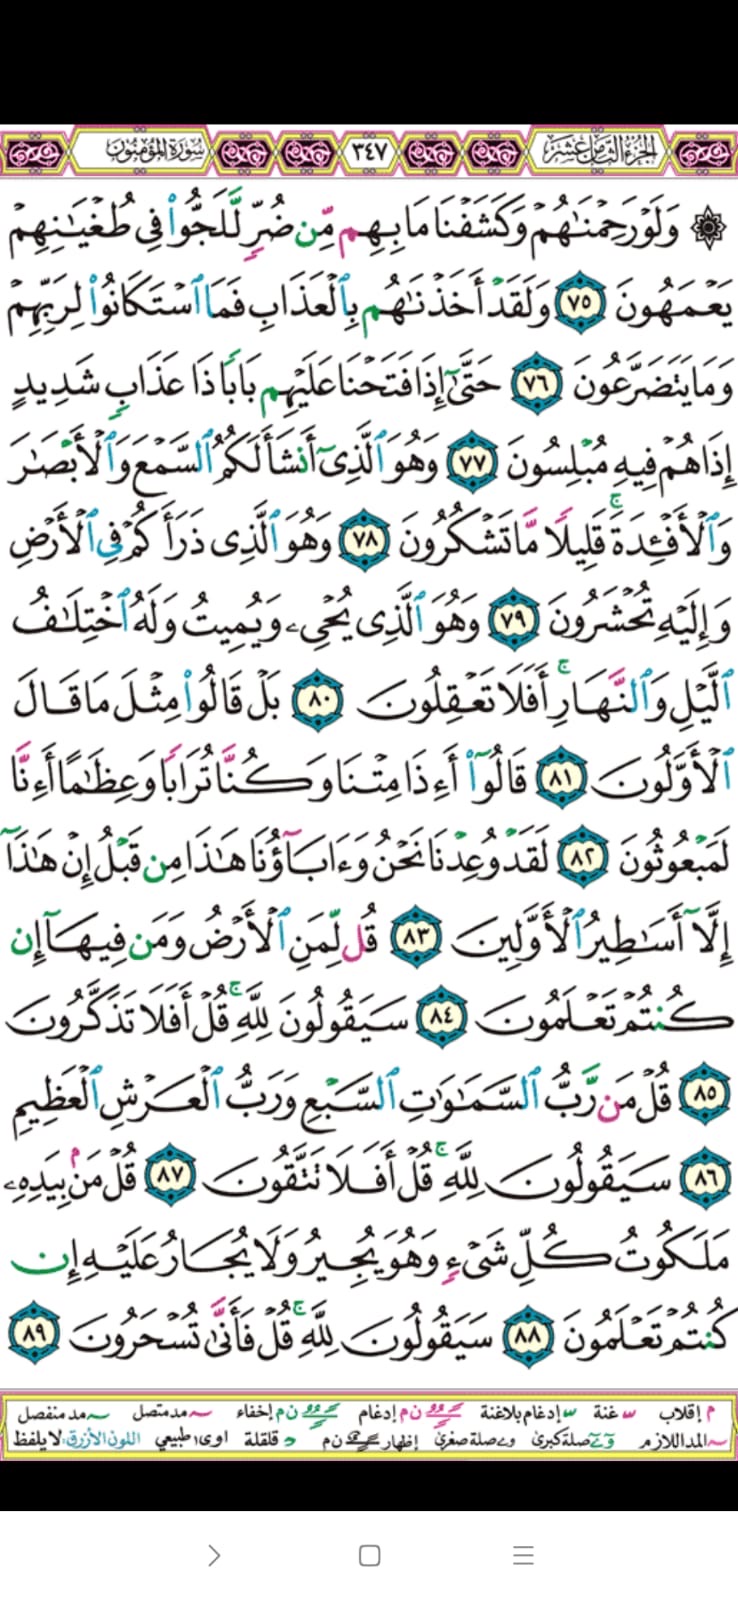 الجزء الثامن عشر ٣٤٧ سورة المؤمنون
۞ وَلَوْ رَحِمْنَٰهُمْ وَكَشَفْنَا مَا بِهِم مِّن ضُرٍّ لَّلَجُّوا۟ فِى طُغْيَٰنِهِمْ
يَعْمَهُونَ ٧٥ وَلَقَدْ أَخَذْنَٰهُم بِٱلْعَذَابِ فَمَا ٱسْتَكَانُوا۟ لِرَبِّهِمْ
وَمَا يَتَضَرَّعُونَ ٧٦ حَتَّىٰٓ إِذَا فَتَحْنَا عَلَيْهِم بَابًا ذَا عَذَابٍ شَدِيدٍ
إِذَا هُمْ فِيهِ مُبْلِسُونَ ٧٧ وَهُوَ ٱلَّذِىٓ أَنشَأَ لَكُمُ ٱلسَّمْعَ وَٱلْأَبْصَٰرَ
وَٱلْأَفْـِٔدَةَ ۚ قَلِيلًا مَّا تَشْكُرُونَ ٧٨ وَهُوَ ٱلَّذِى ذَرَأَكُمْ فِى ٱلْأَرْضِ
وَإِلَيْهِ تُحْشَرُونَ ٧٩ وَهُوَ ٱلَّذِى يُحْىِۦ وَيُمِيتُ وَلَهُ ٱخْتِلَٰفُ
ٱلَّيْلِ وَٱلنَّهَارِ ۚ أَفَلَا تَعْقِلُونَ ٨٠ بَلْ قَالُوا۟ مِثْلَ مَا قَالَ
ٱلْأَوَّلُونَ ٨١ قَالُوٓا۟ أَءِذَا مِتْنَا وَكُنَّا تُرَابًا وَعِظَٰمًا أَءِنَّا
لَمَبْعُوثُونَ ٨٢ لَقَدْ وُعِدْنَا نَحْنُ وَءَابَآؤُنَا هَٰذَا مِن قَبْلُ إِنْ هَٰذَآ
إِلَّآ أَسَٰطِيرُ ٱلْأَوَّلِينَ ٨٣ قُل لِّمَنِ ٱلْأَرْضُ وَمَن فِيهَآ إِن
كُنتُمْ تَعْلَمُونَ ٨٤ سَيَقُولُونَ لِلَّهِ ۚ قُلْ أَفَلَا تَذَكَّرُونَ
٨٥ قُلْ مَن رَّبُّ ٱلسَّمَٰوَٰتِ ٱلسَّبْعِ وَرَبُّ ٱلْعَرْشِ ٱلْعَظِيمِ
٨٦ سَيَقُولُونَ لِلَّهِ ۚ قُلْ أَفَلَا تَتَّقُونَ ٨٧ قُلْ مَنۢ بِيَدِهِۦ
مَلَكُوتُ كُلِّ شَىْءٍ وَهُوَ يُجِيرُ وَلَا يُجَارُ عَلَيْهِ إِن
كُنتُمْ تَعْلَمُونَ ٨٨ سَيَقُولُونَ لِلَّهِ ۚ قُلْ فَأَنَّىٰ تُسْحَرُونَ ٨٩
م إقلاب غنة إدغام بلاغنة ن م إدغام ن م إخفاء مد متصل مد منفصل
المد اللازم صلة كبرى صلة صغرى إظهار ن م قلقلة اوى طبيعي اللون الأزرق: لا يلفظ